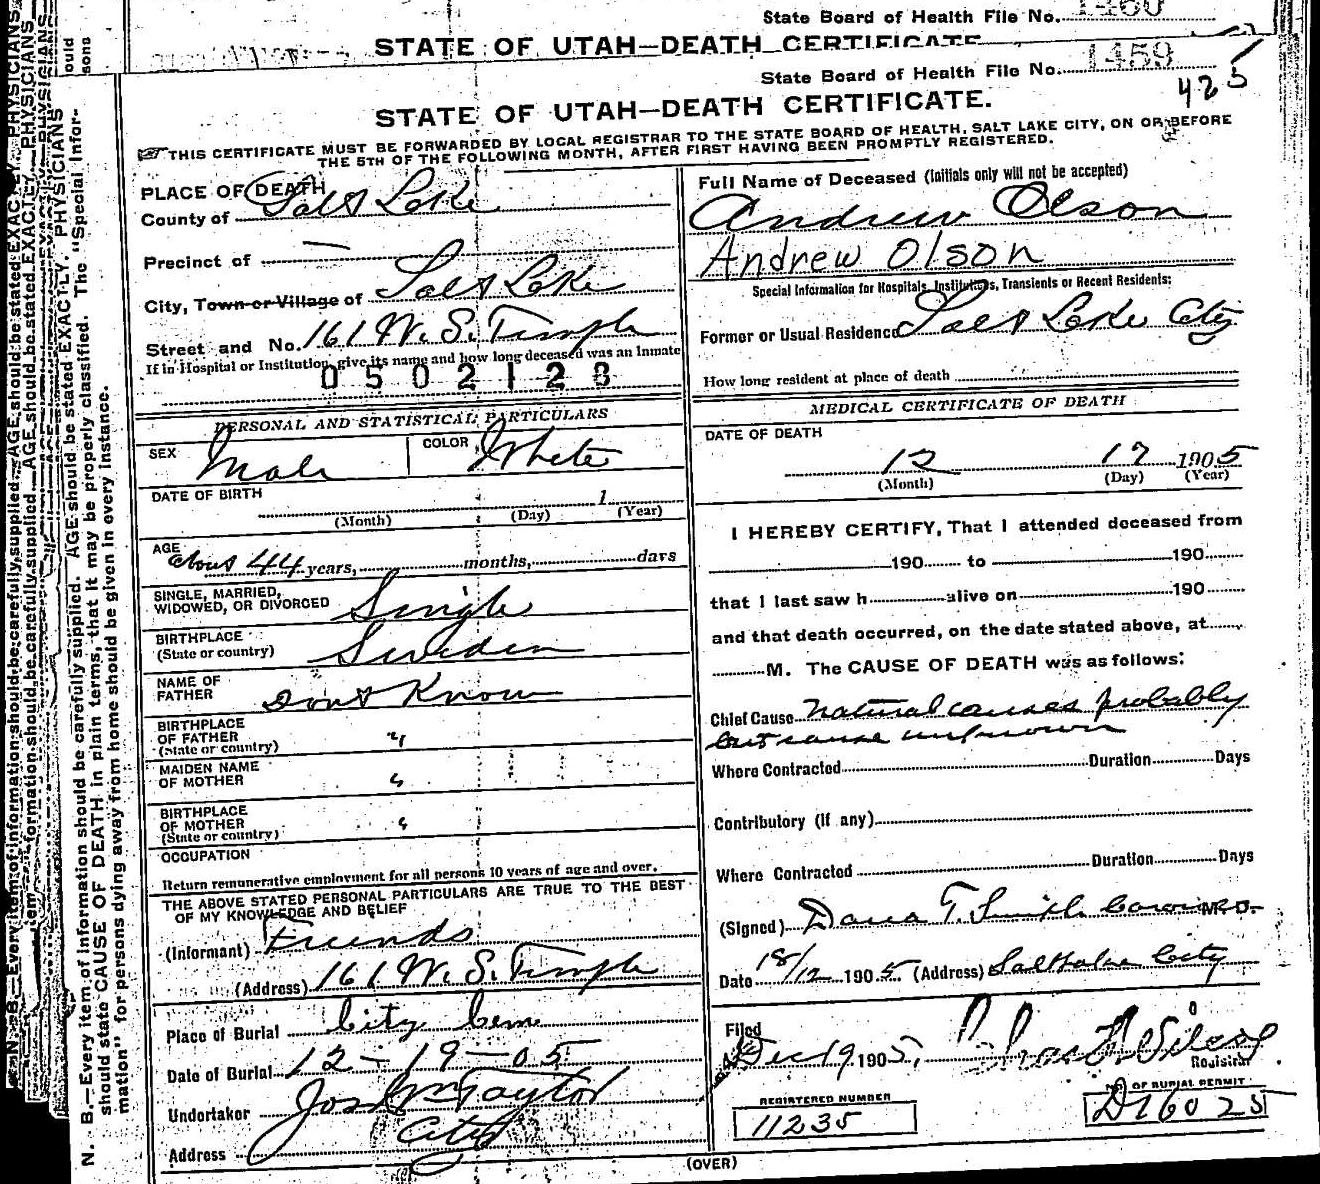 State Board of Health File No. 1460
STATE OF UTAH—DEATH CERTIFICATE
State Board of Health File No. 1459
425
STATE OF UTAH—DEATH CERTIFICATE.
THIS CERTIFICATE MUST BE FORWARDED BY LOCAL REGISTRAR TO THE STATE BOARD OF HEALTH, SALT LAKE CITY, ON OR BEFORE
THE 5TH OF THE FOLLOWING MONTH, AFTER FIRST HAVING BEEN PROMPTLY REGISTERED.
PLACE OF DEATH
County of Salt Lake
Precinct of —
City, Town or Village of Salt Lake
Street and No. 161 W. S. Temple
If in Hospital or Institution, give its name and how long deceased was an Inmate
0502128
PERSONAL AND STATISTICAL PARTICULARS
SEX Male COLOR White
DATE OF BIRTH 1
(Month) (Day) (Year)
AGE about 44 years, months, days
SINGLE, MARRIED,
WIDOWED, OR DIVORCED Single
BIRTHPLACE
(State or country) Sweden
NAME OF
FATHER Dont Know
BIRTHPLACE
OF FATHER "
(State or country)
MAIDEN NAME
OF MOTHER "
BIRTHPLACE
OF MOTHER "
(State or country)
OCCUPATION
Return remunerative employment for all persons 10 years of age and over.
THE ABOVE STATED PERSONAL PARTICULARS ARE TRUE TO THE BEST
OF MY KNOWLEDGE AND BELIEF
(Informant) Friends
(Address) 161 W. S. Temple
Place of Burial City Cem
Date of Burial 12-19-05
Undertaker Jos Wm Taylor
Address City
Full Name of Deceased (Initials only will not be accepted)
Andrew Olson
Andrew Olson
Special Information for Hospitals, Institutions, Transients or Recent Residents:
Former or Usual Residence Salt Lake City
How long resident at place of death
MEDICAL CERTIFICATE OF DEATH
DATE OF DEATH
12 17 1905
(Month) (Day) (Year)
I HEREBY CERTIFY, That I attended deceased from
190 to 190
that I last saw h alive on 190
and that death occurred, on the date stated above, at
M. The CAUSE OF DEATH was as follows:
Chief Cause natural causes probably
but cause unknown
Where Contracted Duration Days
Contributory (if any)
Where Contracted Duration Days
(Signed) Dana T. Smith Coroner M.D.
Date 18/12 1905 (Address) Salt Lake City
Filed
Dec 19 1905,
Registrar
REGISTERED NUMBER
11235
NO. OF BURIAL PERMIT
D16025
(OVER)
N. B.—Every item of information should be carefully supplied. AGE should be stated EXACTLY. PHYSICIANS
should state CAUSE OF DEATH in plain terms, that it may be properly classified. The "Special Infor-
mation" for persons dying away from home should be given in every instance.